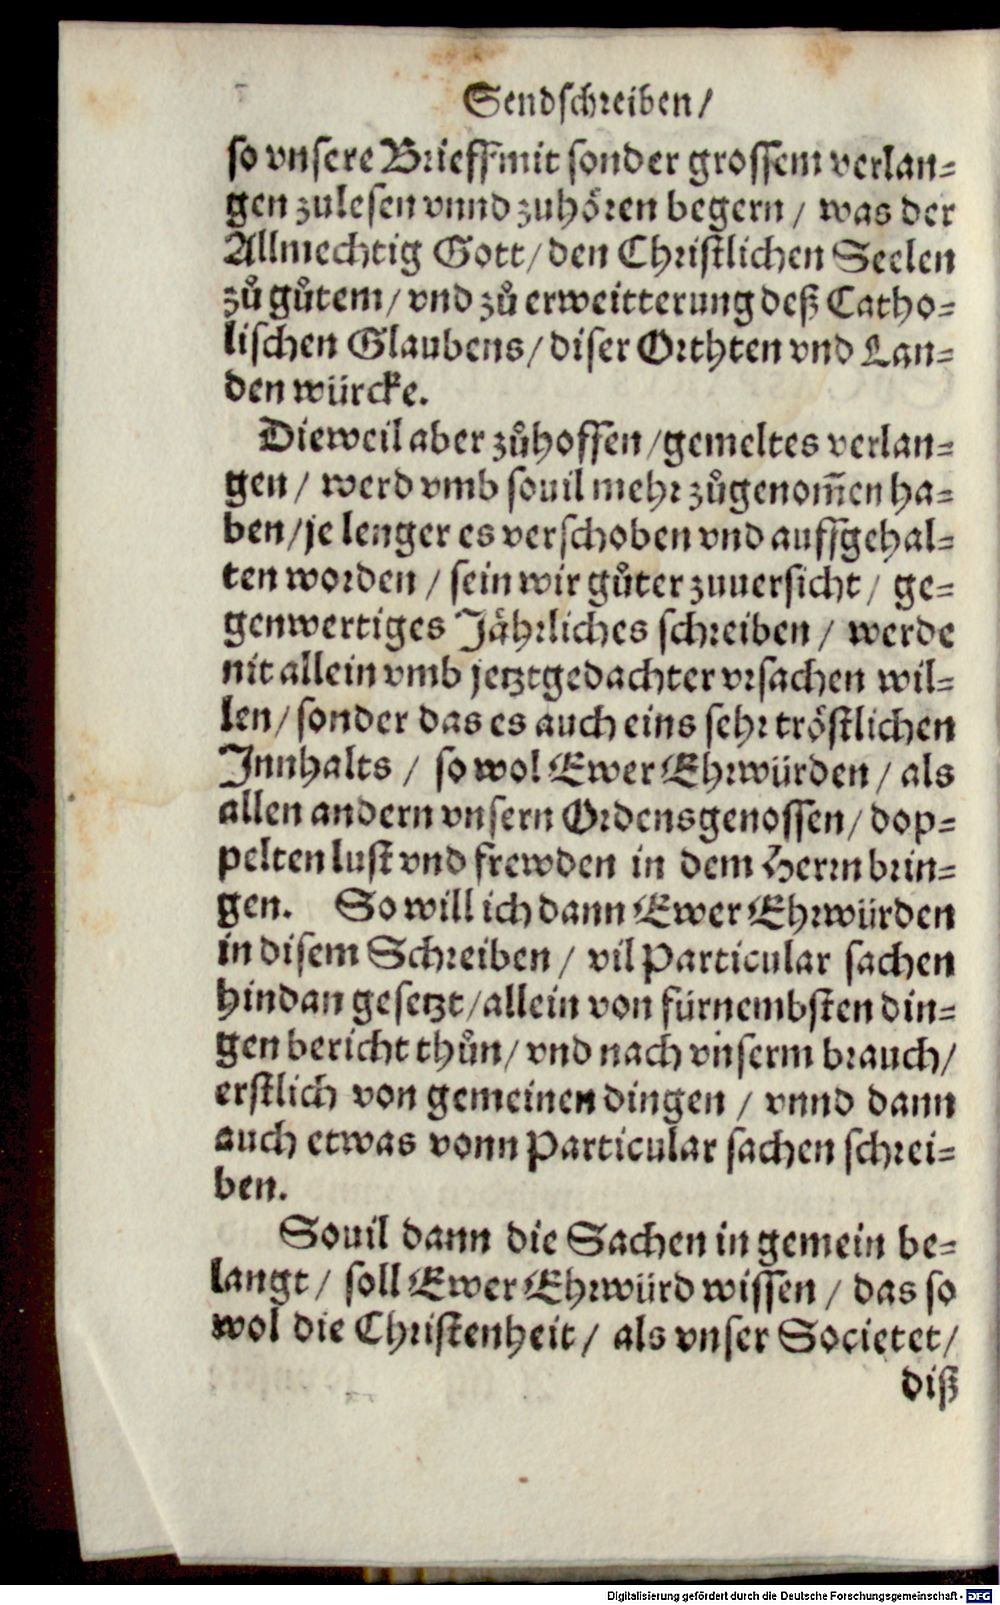 Sendschreiben/
so vnsere Brieff mit sonder grossem verlan-
gen zulesen vnnd zuhören begern / was der
Allmechtig Gott/ den Christlichen Seelen
zů gůtem/ vnd zů erweitterung deß Catho-
lischen Glaubens/ diser Orthten vnd Lan-
den würcke.
Dieweil aber zůhoffen /gemeltes verlan-
gen / werd vmb souil mehr zůgenom̃en ha-
ben/je lenger es verschoben vnd auffgehal-
ten worden / sein wir gůter zuuersicht / ge-
genwertiges Jährliches schreiben / werde
nit allein vmb jetztgedachter vrsachen wil-
len/ sonder das es auch eins sehr tröstlichen
Innhalts / so wol Ewer Ehrwürden / als
allen andern vnsern Ordensgenossen/ dop-
pelten lust vnd frewden in dem Herrn brin-
gen. So will ich dann Ewer Ehrwürden
in disem Schreiben / vil Particular sachen
hindan gesetzt/allein von fürnembsten din-
gen bericht thůn/ vnd nach vnserm brauch/
erstlich von gemeinen dingen / vnnd dann
auch etwas vonn Particular sachen schrei-
ben.
Souil dann die Sachen in gemein be-
langt / soll Ewer Ehrwürd wissen / das so
wol die Christenheit / als vnser Societet/
diß
Digitalisierung gefördert durch die Deutsche Forschungsgemeinschaft - DFG